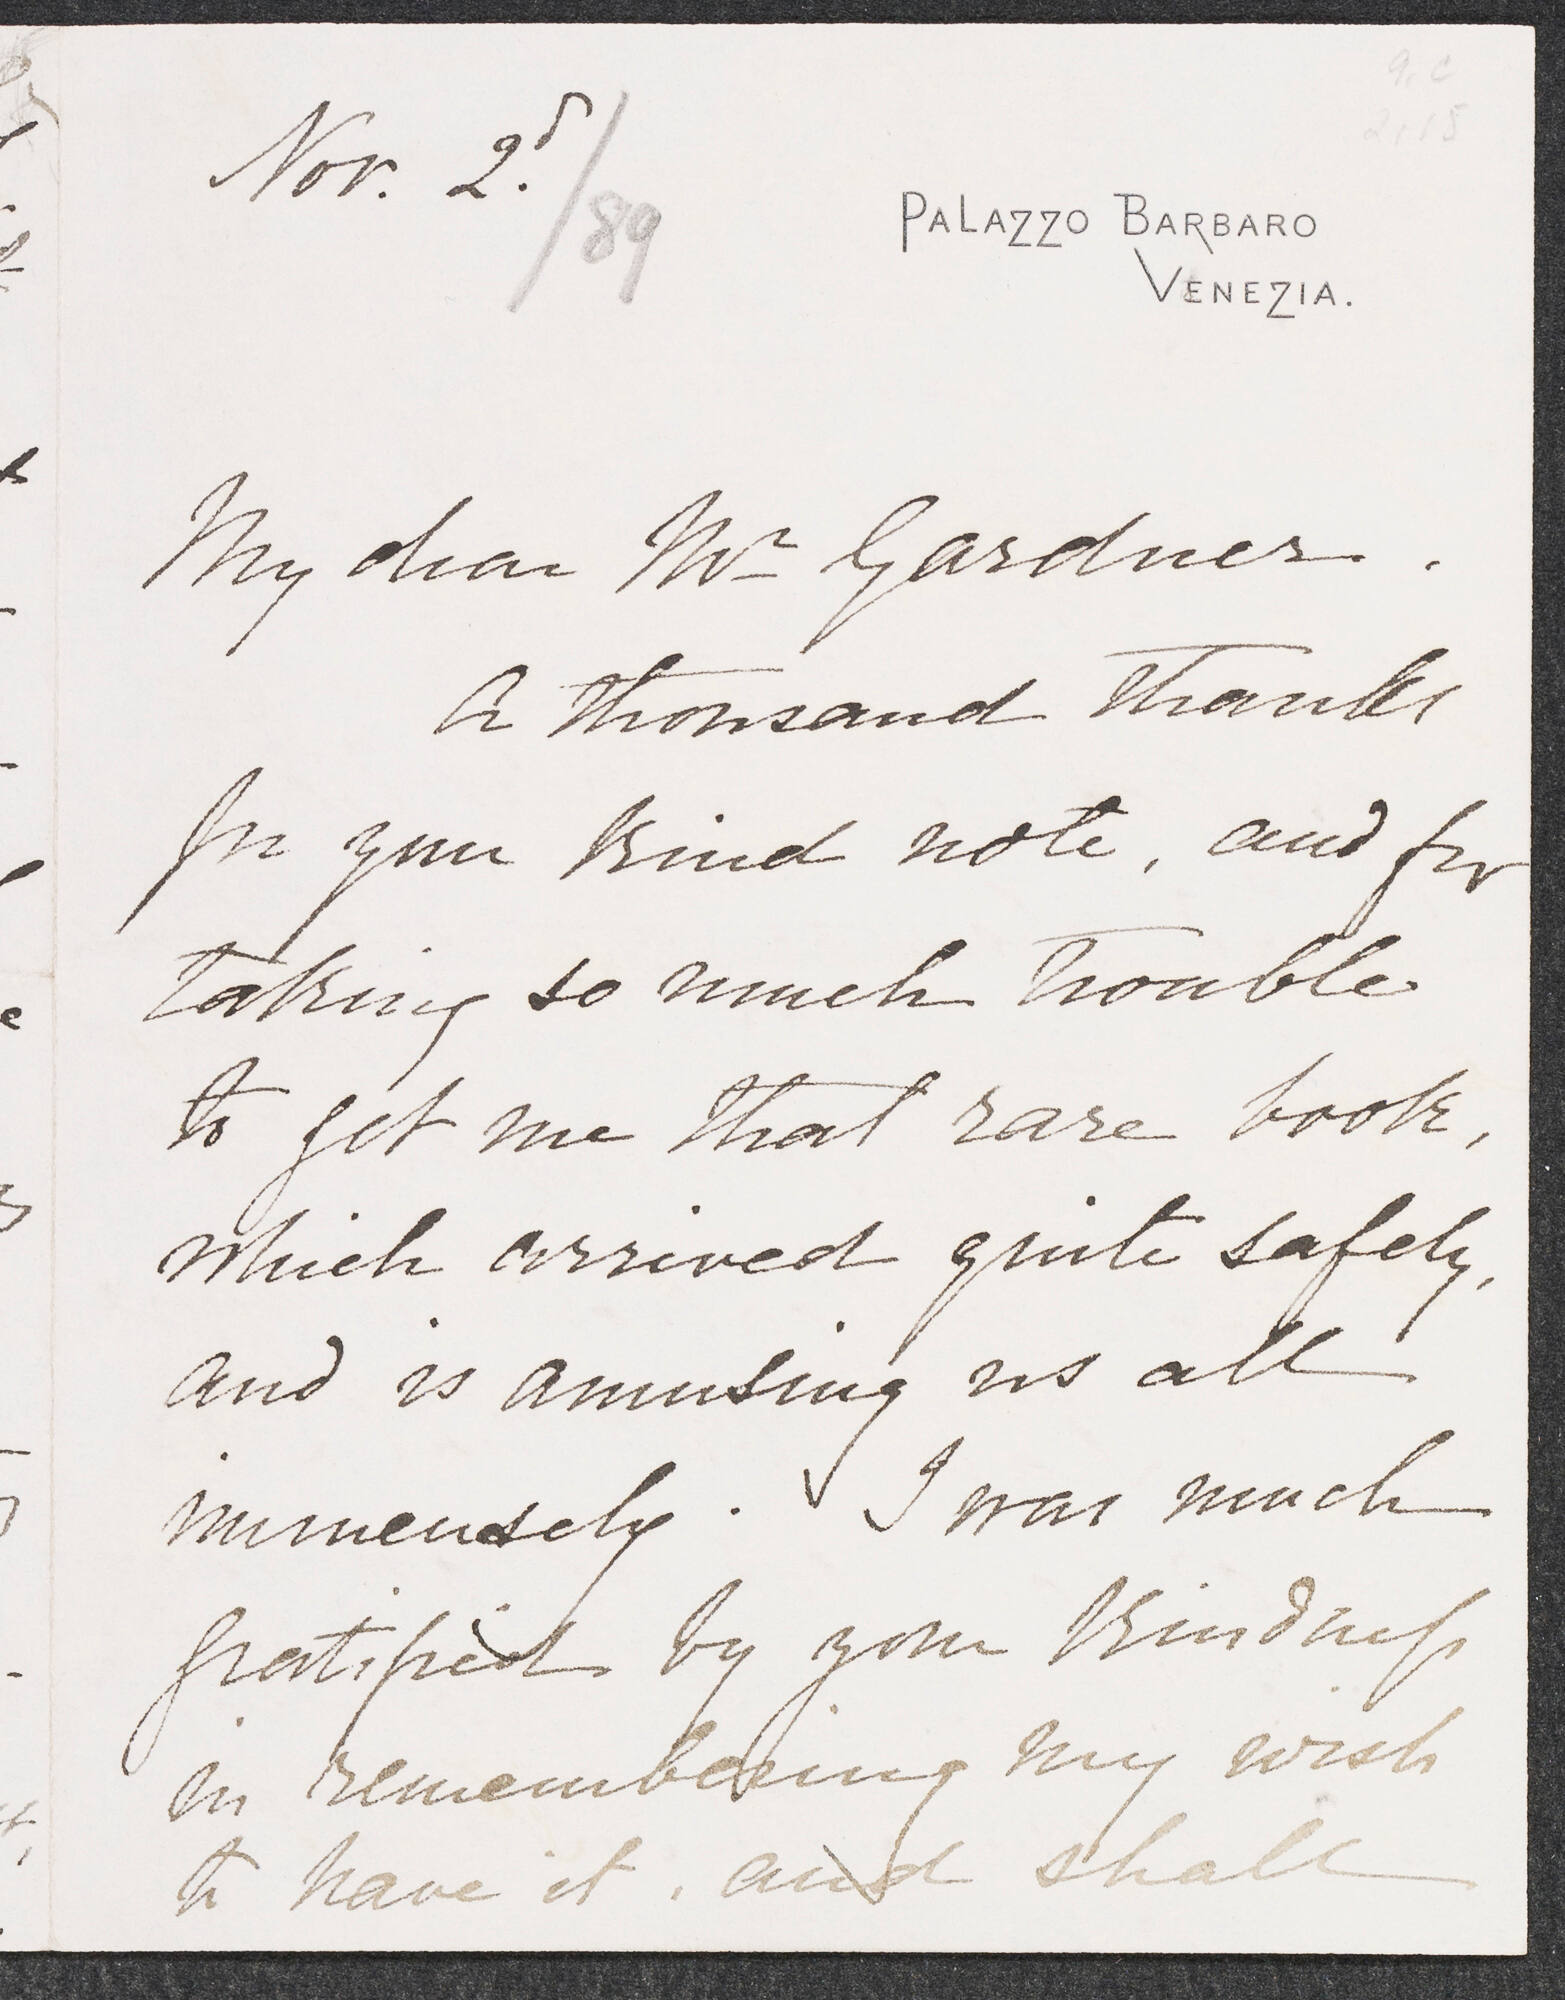 Nov. 2.d/89
PALAZZO BARBARO
VENEZIA.
My dear Mr Gardner.
A thousand thanks
for your kind note, and for
taking so much trouble
to get me that rare book,
which arrived quite safely,
and is amusing us all
immensely. I was much
gratified by your kindness
in remembering my wish
to have it, and shall